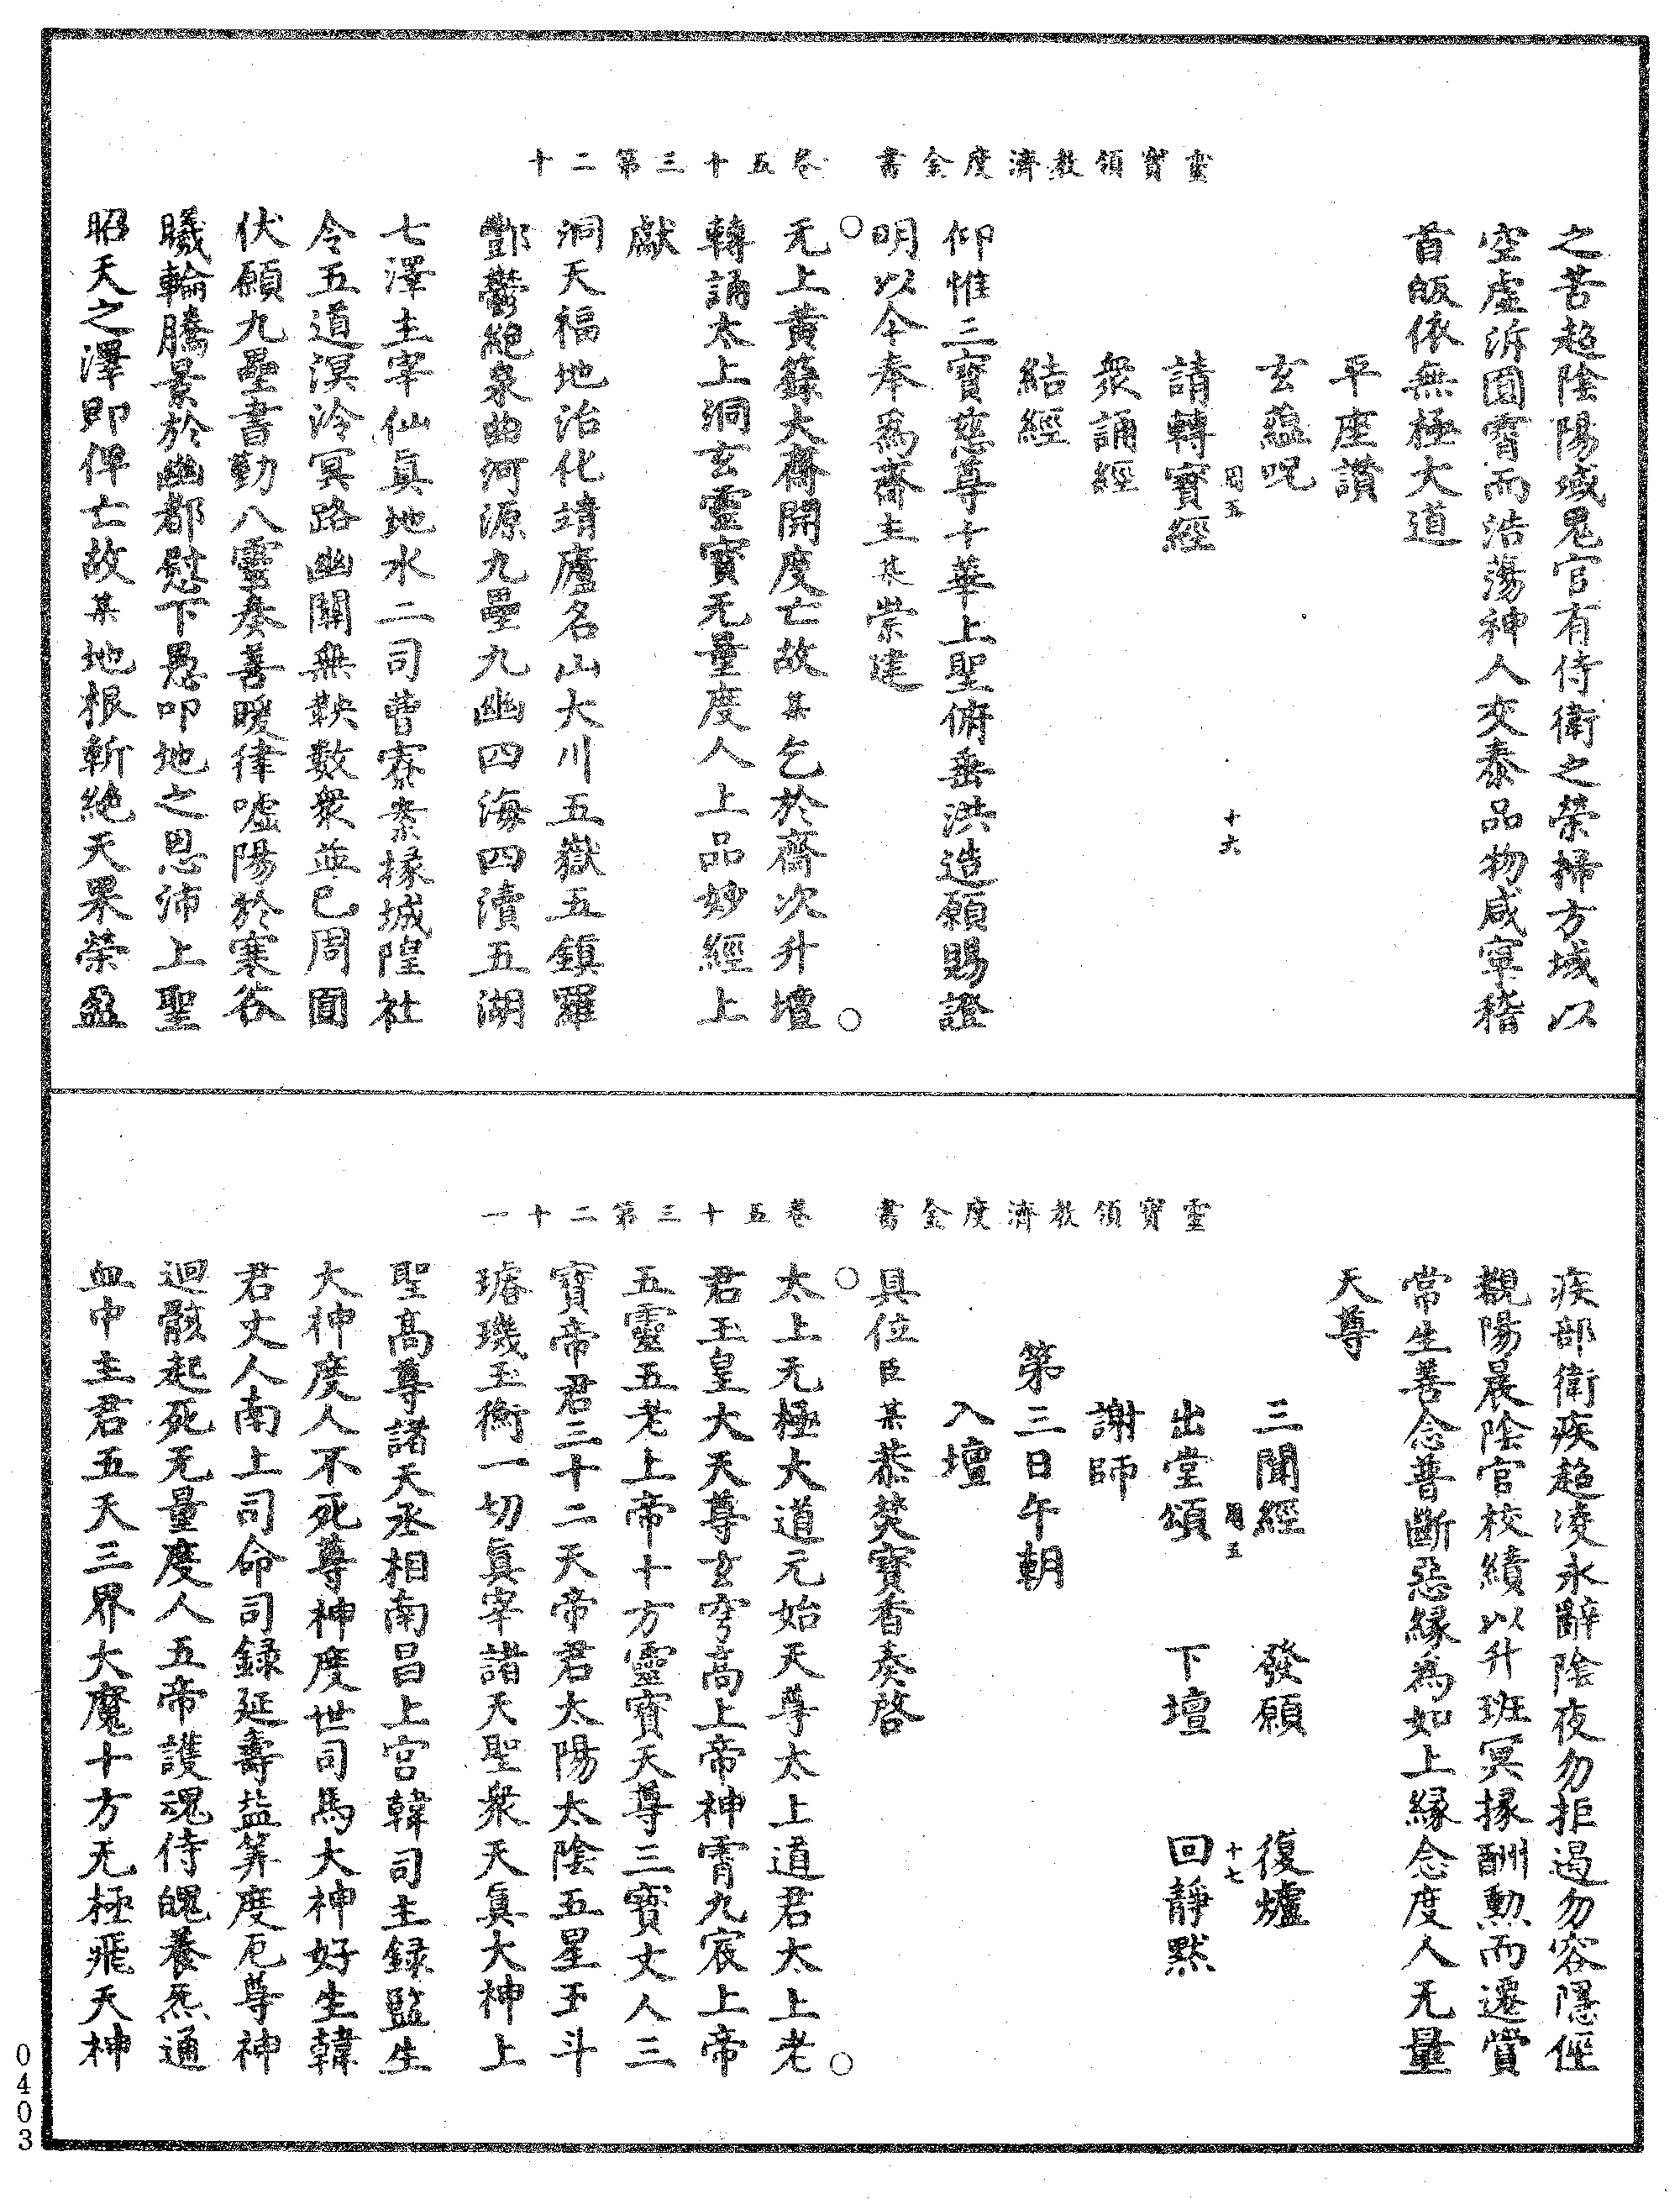 靈寶領教濟度金書　卷五十三第二十
之苦超陰陽域鬼官有侍衛之榮掃方域以
空虛泝圓霄而浩蕩神人交泰品物咸寧稽
首皈依無極大道
平座讚
玄蘊呪
請轉寶經　同五　十六
衆誦經
結經
仰惟三寶慈尊十華上聖俯垂洪造願賜證
明以今奉爲齋主某崇建
无上黃籙大齋開度亡故某乞於齋次升壇
轉誦太上洞玄靈寶无量度人上品妙經上
獻
洞天福地治化靖廬名山大川五嶽五鎮羅
酆鬱絕泉曲河源九壘九幽四海四瀆五湖
七澤主宰仙眞地水二司曹寮案掾城隍社
令五道溟泠冥路幽關無鞅數衆並已周圓
伏願九壘書勤八靈奏善暖律噓陽於寒谷
曦輪騰景於幽都慰下愚叩地之恩沛上聖
昭天之澤即俾亡故某地根斬絕天果榮盈
靈寶領教濟度金書　卷五十三第二十一
疾部衛疾超淩永辭陰夜勿拒遏勿容隱徑
觀陽晨陰官校績以升班冥掾酬勲而遷賞
常生善念普斷惡緣爲如上緣念度人无量
天尊
三聞經　發願　復爐
出堂頌　同五　下壇　回靜默　十七
謝師
第三日午朝
入壇
具位臣某恭焚寶香奏啓
太上无極大道元始天尊太上道君太上老
君玉皇大天尊玄穹高上帝神霄九宸上帝
五靈五老上帝十方靈寶天尊三寶丈人三
寶帝君三十二天帝君太陽太陰五星玉斗
璿璣玉衡一切眞宰諸天聖衆天眞大神上
聖高尊諸天丞相南昌上宮韓司主録監生
大神度人不死尊神度世司馬大神好生韓
君丈人南上司命司録延壽益筭度厄尊神
迴骸起死无量度人五帝護魂侍魄養炁通
血中主君五天三界大魔十方无極飛天神
0403